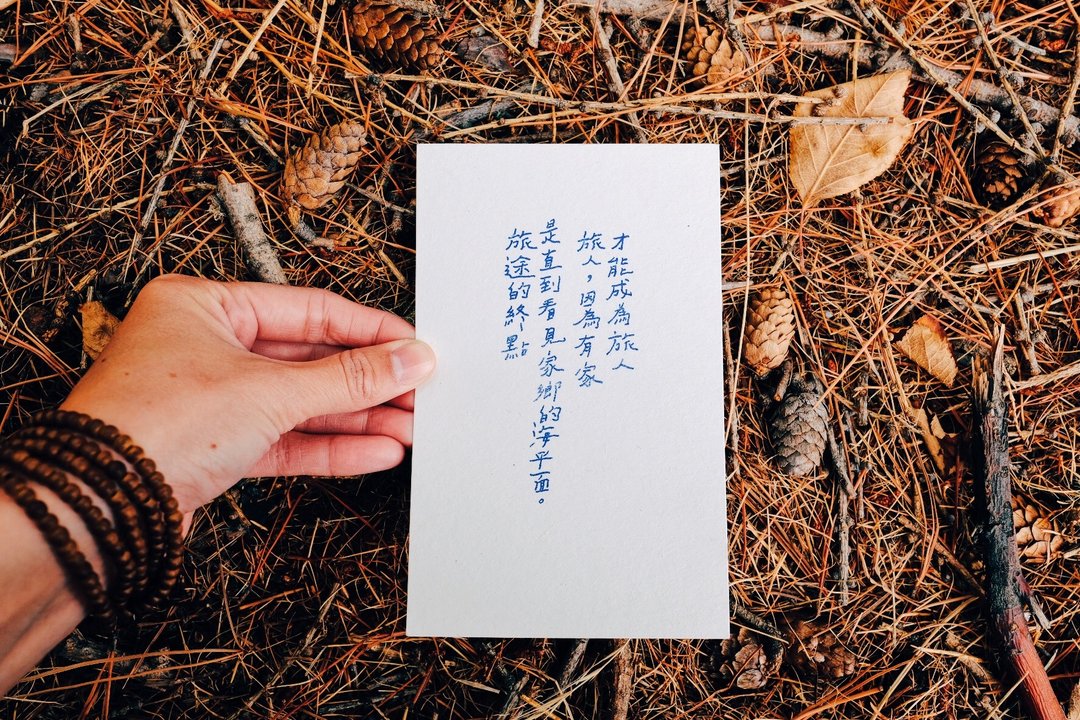 旅途的終點
是直到看見家鄉的海平面。
旅人，因為有家
才能成為旅人